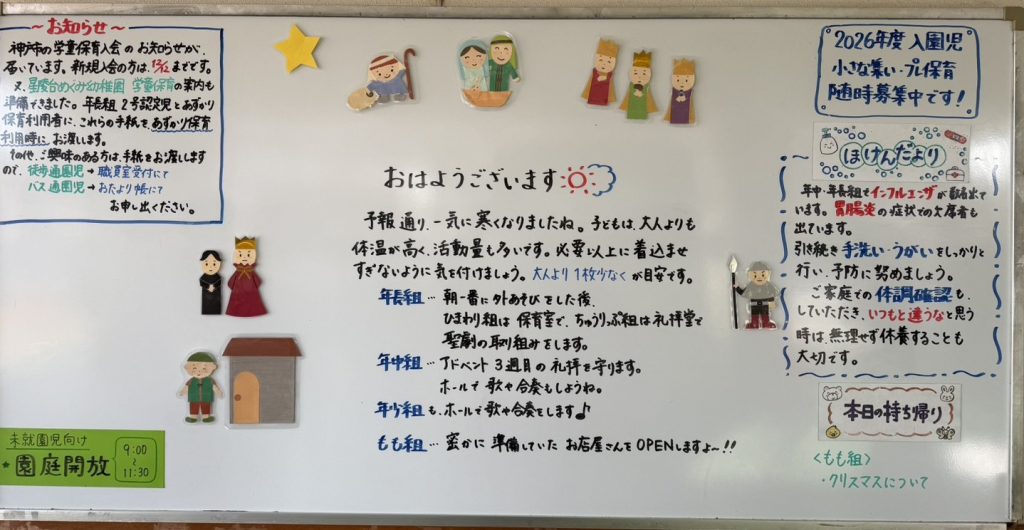 ～お知らせ～
神戸市の学童保育入会のお知らせが、
届いています。新規入会の方は、12/12までです。
又、星陵台めぐみ幼稚園 学童保育の案内も
準備できました。年長組 2号認定児とあずかり
保育利用者に、これらの手紙を、あずかり保育
利用時に、お渡します。
その他、ご興味のある方は、手紙をお渡します
ので、徒歩通園児→職員室受付にて
バス通園児→おたより帳にて
お申し出ください。
未就園児向け
園庭開放
9:00
～
11:30
おはようございます
予報通り、一気に寒くなりましたね。子どもは、大人よりも
体温が高く、活動量も多いです。必要以上に着込ませ
すぎないように気を付けましょう。大人より1枚少なくが目安です。
年長組…朝一番に外あそびをした後、
ひまわり組は保育室で、ちゅうりっぷ組は礼拝堂で
聖劇の取り組みをします。
年中組…アドベント3週目の礼拝を守ります。
ホールで歌や合奏もしようね。
年少組も、ホールで歌や合奏をします♪
もも組…密かに準備していたお店屋さんをOPENしますよ～!!
2026年度 入園児
小さな集い・プレ保育
随時募集中です!
ほけんだより
年中・年長組でインフルエンザが
います。胃腸炎の症状での欠席者も
出ています。
引き続き手洗い・うがいをしっかりと
行い、予防に努めましょう。
ご家庭での体調確認も、
していただき、いつもと違うなと思う
時は、無理せず休養することも
大切です。
本日の持ち帰り
<もも組>
・クリスマスについて